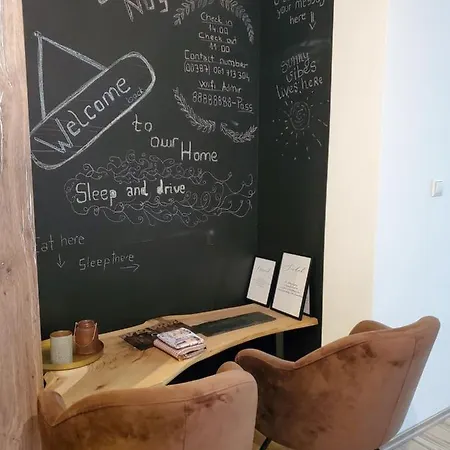 Check in
14:00
Check out
11:00
Contact number
(00387) 061 713 304
Wifi Admir
88888888-Pass
Welcome
back
to
our Home
Sleep and drive
Eat here
Sleep here
your message
here
sunny
vibes
lives here